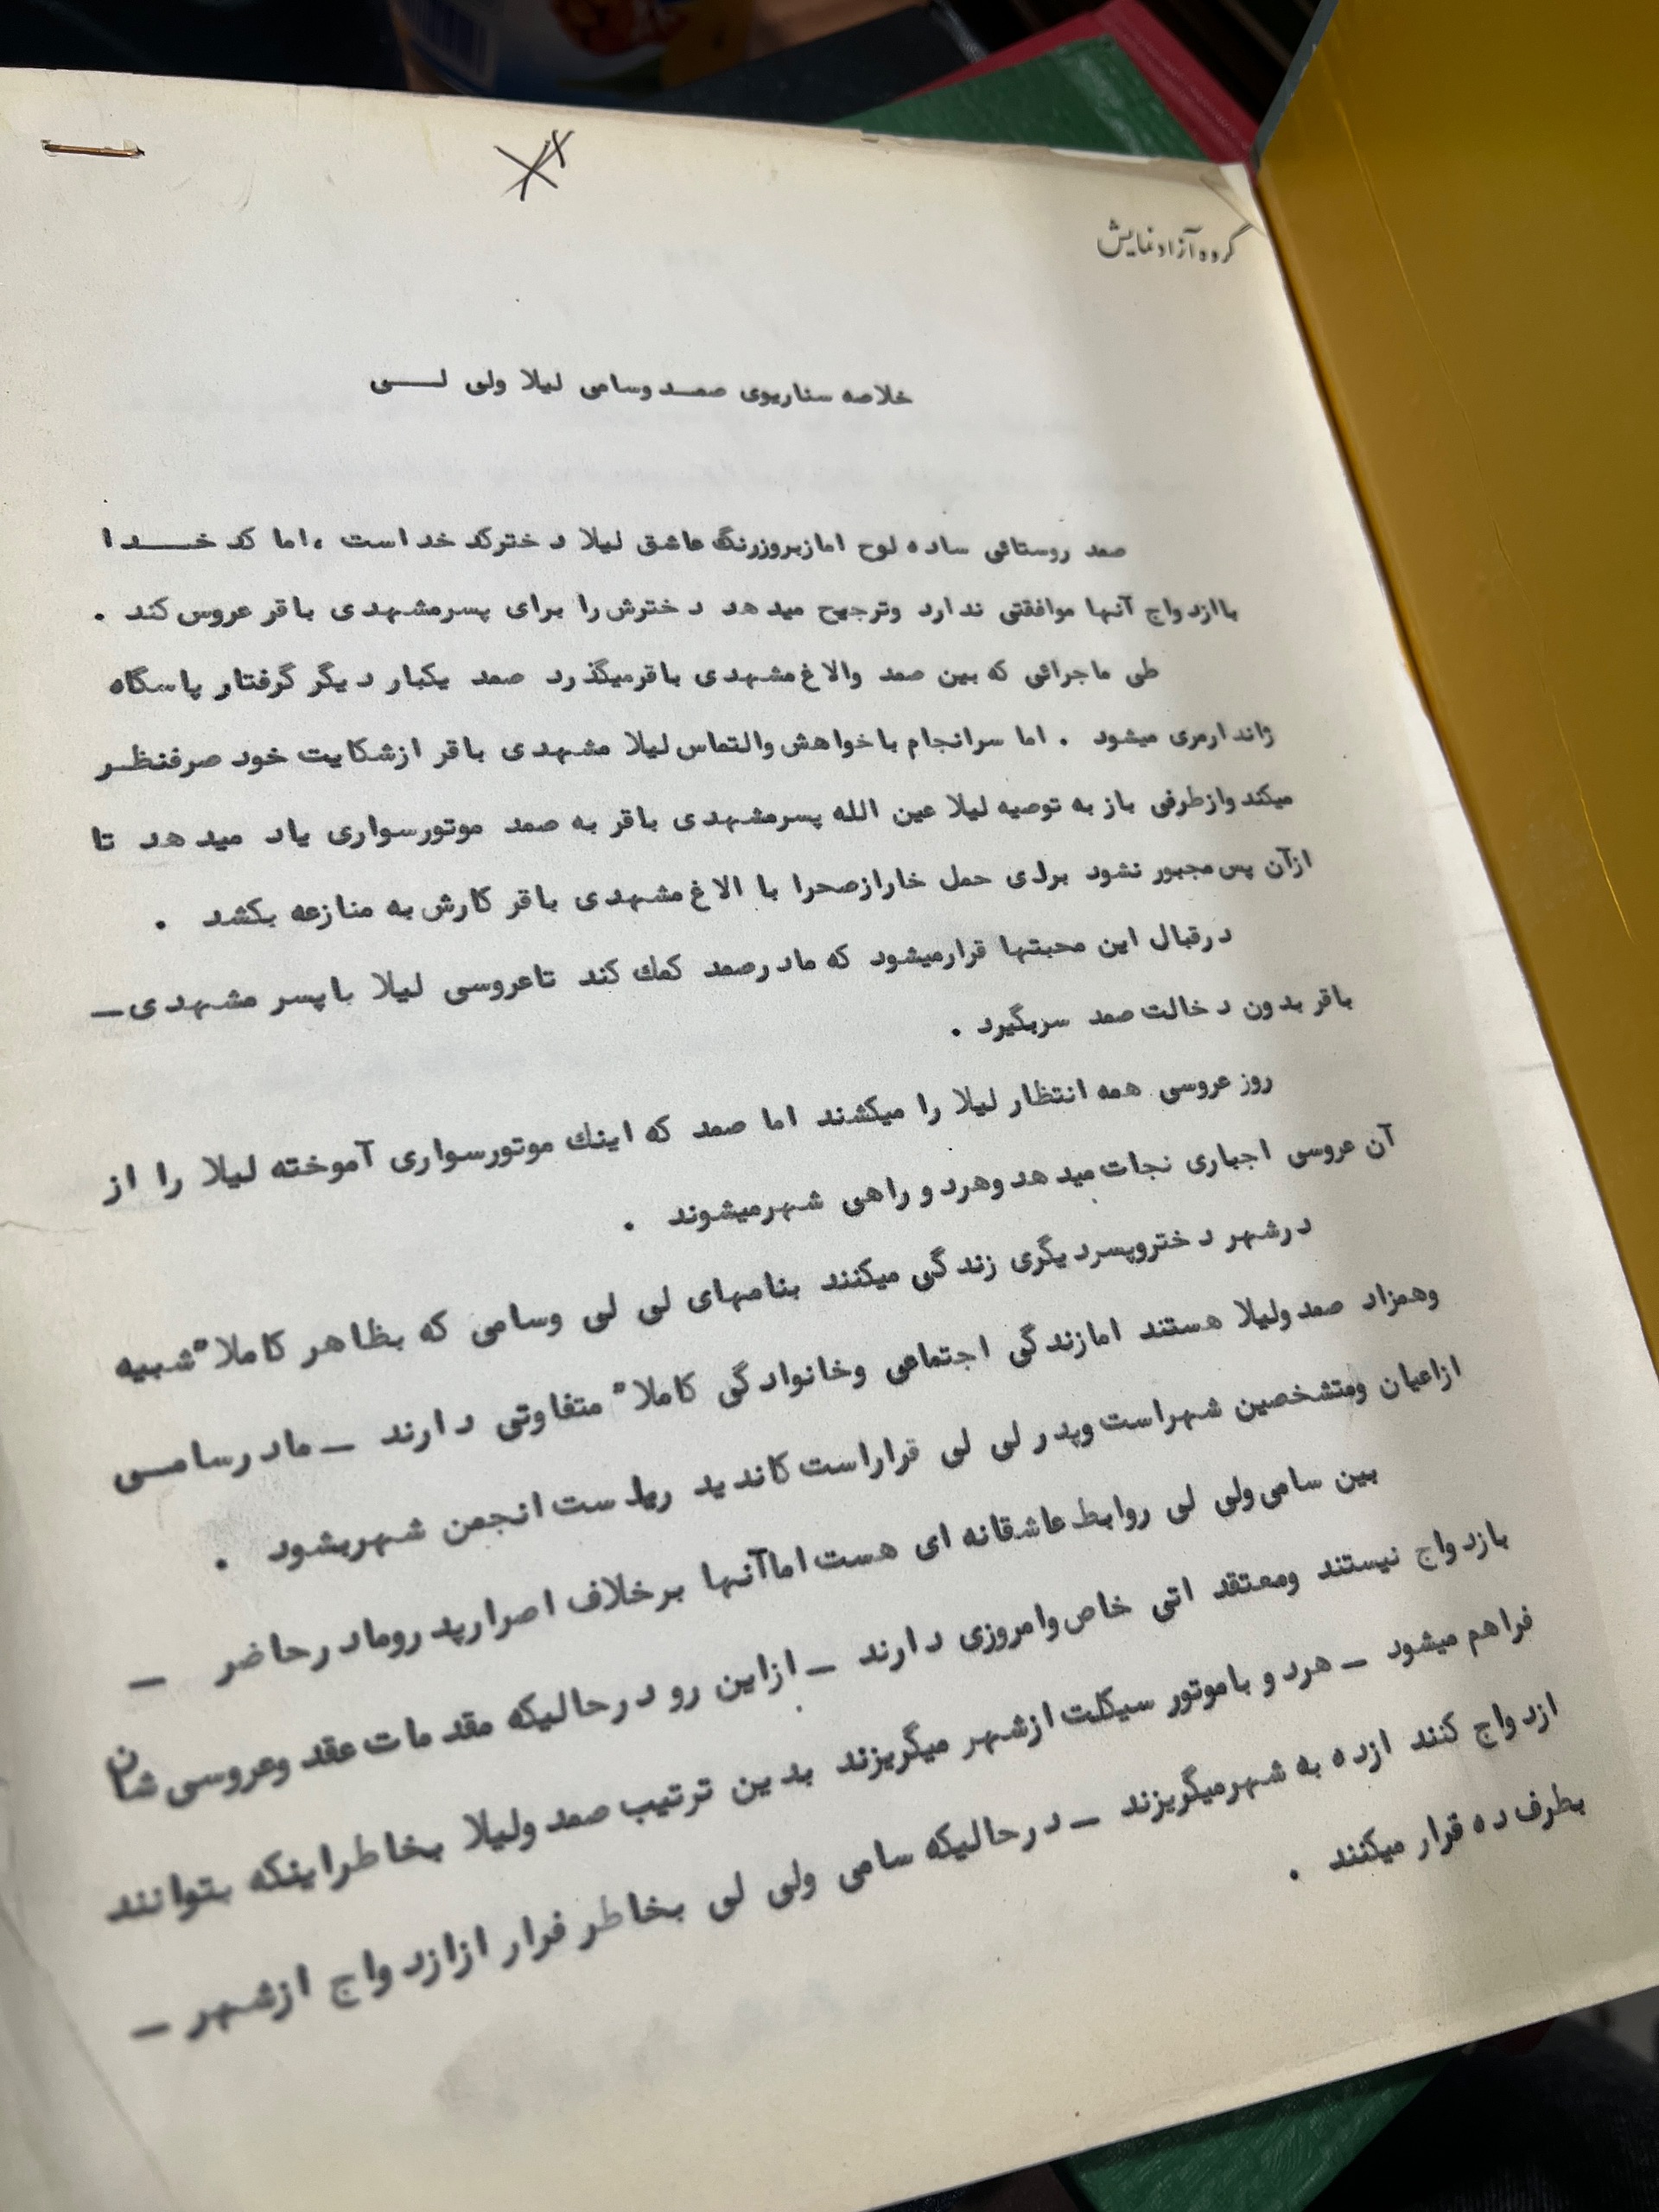 گروه آزاد نمایش
خلاصه سناریوی صمد وسامی لیلا ولی لی
صمد روستائی ساده لوح امازبروزرنگ عاشق لیلا دخترکدخداست ، اما کدخدا
باازدواج آنها موافقتی ندارد وترجیح میدهد دخترش را برای پسرمشهدی باقر عروس کند .
طی ماجرائی که بین صمد والاغ مشهدی باقرمیگذرد صمد یکبار دیگر گرفتار پاسگاه
ژاندارمری میشود . اما سرانجام باخواهش والتماس لیلا مشهدی باقر ازشکایت خود صرفنظر
میکند وازطرفی باز به توصیه لیلا عین الله پسرمشهدی باقر به صمد موتورسواری یاد میدهد تا
ازآن پس مجبور نشود برای حمل خارازصحرا با الاغ مشهدی باقر کارش به منازعه بکشد .
درقبال این محبتها قرارمیشود که مادرصمد کمك کند تاعروسی لیلا باپسر مشهدی ـ
باقر بدون دخالت صمد سربگیرد .
روز عروسی همه انتظار لیلا را میکشند اما صمد که اینك موتورسواری آموخته لیلا را از
آن عروسی اجباری نجات میدهد وهردو راهی شهرمیشوند .
درشهر دختروپسردیگری زندگی میکنند بنامهای لی لی وسامی که بظاهر کاملا" شبیه
وهمزاد صمد ولیلا هستند امازندگی اجتماعی وخانوادگی کاملا" متفاوتی دارند ـ مادرسامی
ازاعیان ومتشخصین شهراست وپدر لی لی قراراست کاندید ریاست انجمن شهربشود .
بین سامی ولی لی روابط عاشقانه ای هست اماآنها برخلاف اصرارپدرومادرحاضر ـ
بازدواج نیستند ومعتقداتی خاص وامروزی دارند ـ ازاین رو درحالیکه مقدمات عقد وعروسی شان
فراهم میشود ـ هردو باموتور سیکلت ازشهر میگریزند بدین ترتیب صمد ولیلا بخاطراینکه بتوانند
ازدواج کنند ازده به شهرمیگریزند ـ درحالیکه سامی ولی لی بخاطر فرار ازازدواج ازشهر ـ
بطرف ده قرار میکنند .